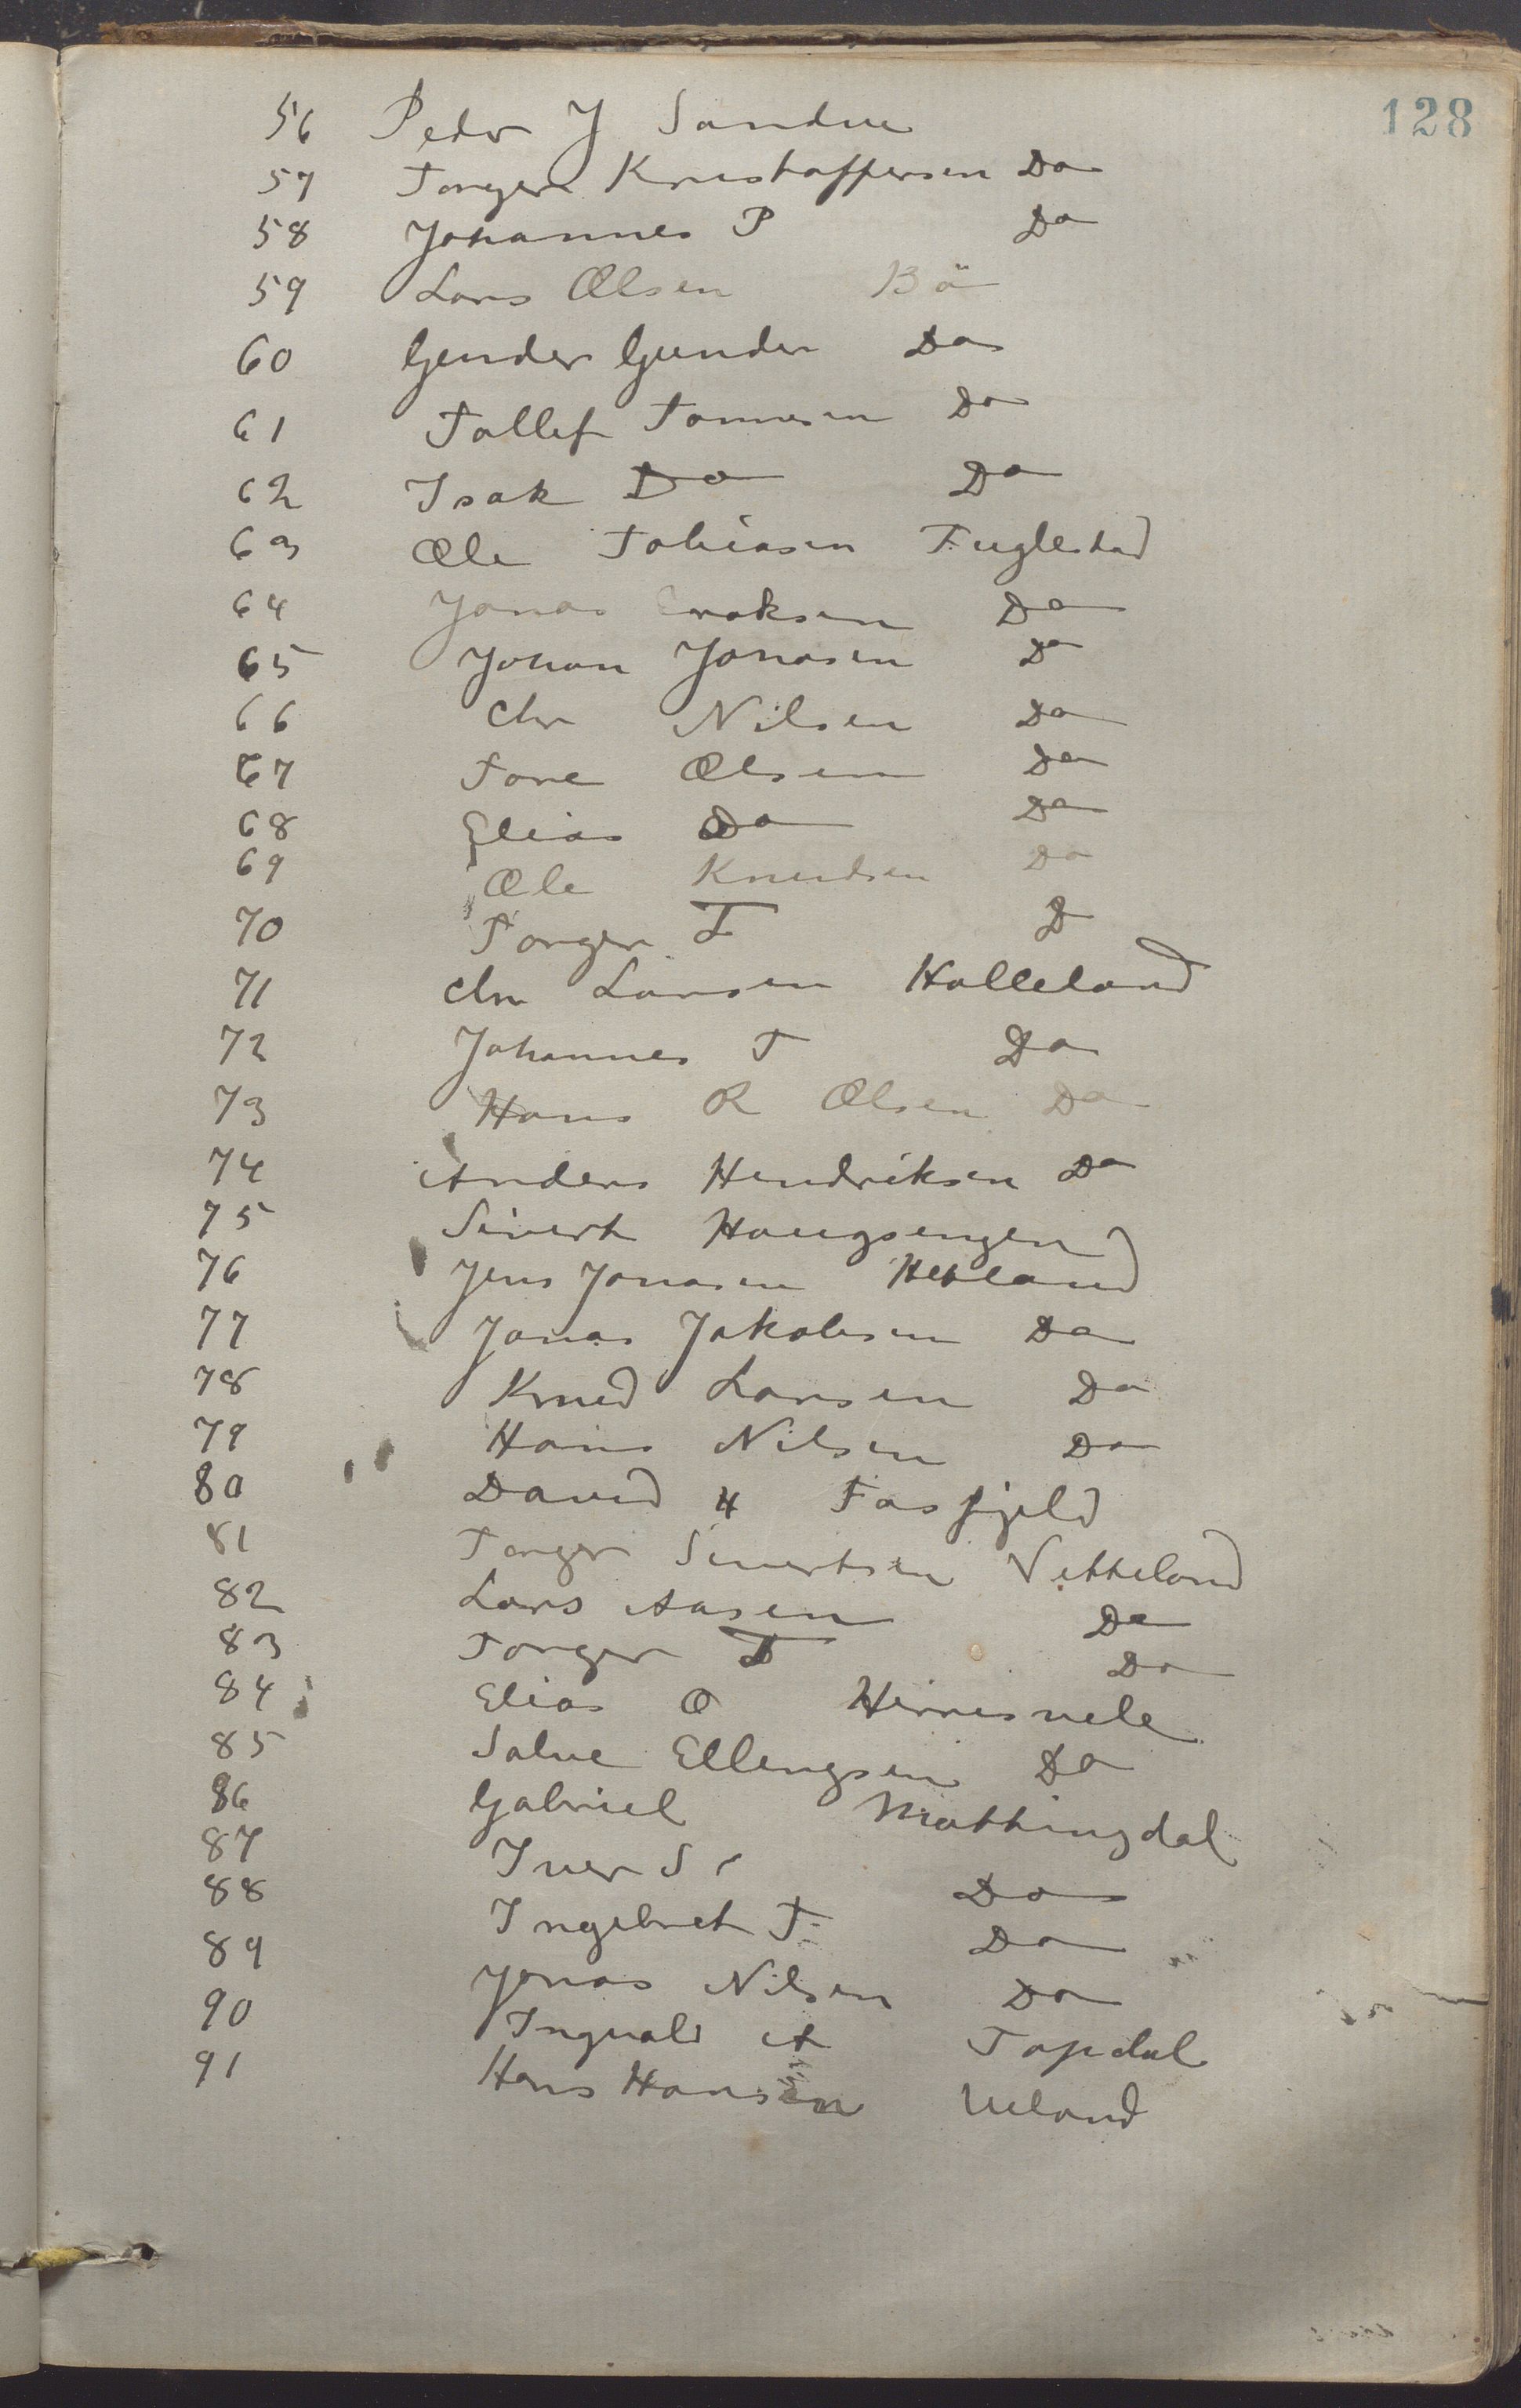 128
56 Peder J Sandve
57 Torger Kristoffersen Do
58 Johannes P Do
59 Lars Olsen Bö
60 Gunder Gunder Do
61 Tollef Tonnesen Do
62 Isak Do Do
63 Ole Tobiasen Fuglestad
64 Jonas Eroksen Do
65 Johan Jonasen Do
66 Chr Nilsen Do
67 Tore Olsen Do
68 Elias Do Do
69 Ole Knudsen Do
70 Torger T D
71 Chr Larsen Holleland
72 Johannes T Do
73 Hans R Olsen Do
74 Anders Hendriksen Do
75 Sivert Haugsengen
76 Jens Jonasen Hetland
77 Jonas Jakobsen Do
78 Knud Larsen Do
79 Hans Nilsen Do
80 David H Fasfjeld
81 Torger Sivertsen Vetteland
82 Lars Aasen Do
83 Torger T Do
84 Elias O
85 Salve Ellengsen Do
86 Gabriel Mattingdal
87 Iver S Do
88 Ingebret T Do
89 Jonas Nilsen Do
90 Ingvald A Topdal
91 Hans Hansen Ueland